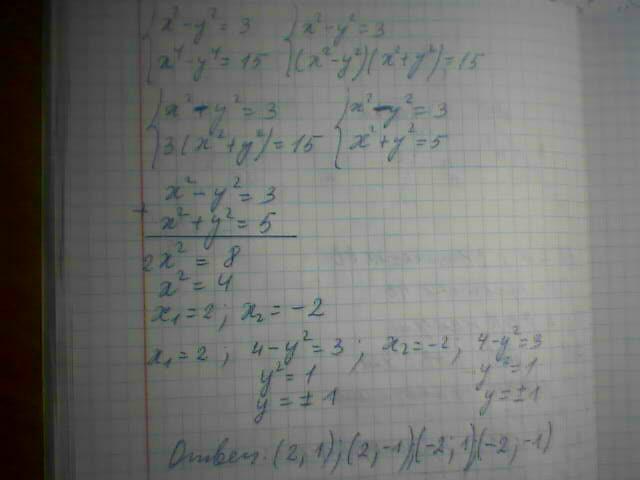 {x² - y² = 3 {x² - y² = 3
{x⁴ - y⁴ = 15 {(x² - y²)(x² + y²) = 15
{x² - y² = 3 {x² - y² = 3
{3(x² + y²) = 15 {x² + y² = 5
x² - y² = 3
+ x² + y² = 5
2x² = 8
x² = 4
x₁ = 2; x₂ = -2
x₁ = 2; 4 - y² = 3; x₂ = -2; 4 - y² = 3
y² = 1 y² = 1
y = ± 1 y = ± 1
Ответ: (2; 1); (2; -1) (-2; 1) (-2; -1)